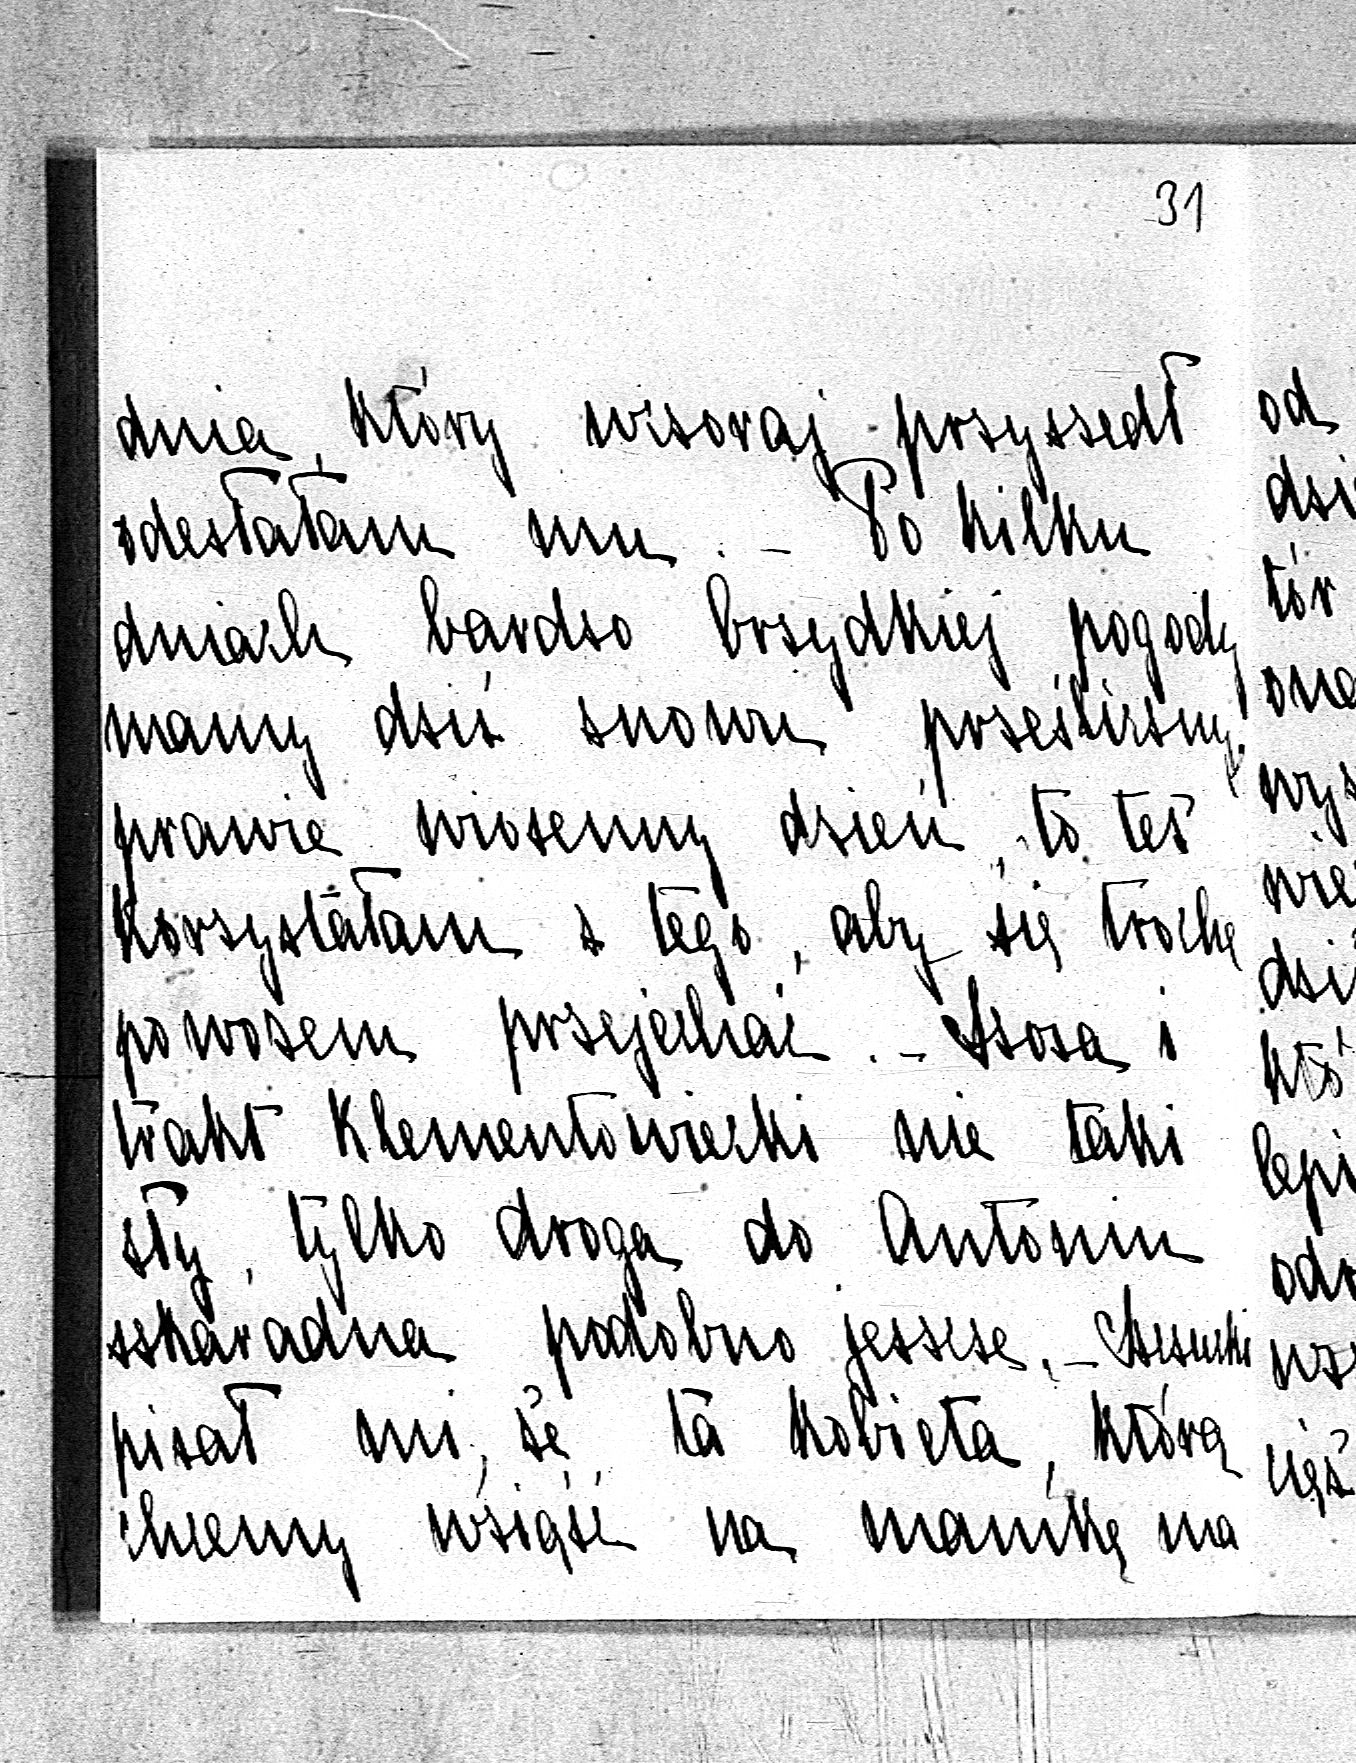 31
dnia, który wczoraj przyszedł
odesłałam mu. – Po kilku
dniach bardzo brzydkiej pogody
mamy dziś znowu prześliczny,
prawie wiosenny dzień, to też
korzystałam z tego, aby się trochę
powozem przejechać. – Szosa i
trakt Klementowicki nie taki
zły, tylko droga do Antonin
szkaradna podobno jeszcze. –
pisał mi, że ta kobieta, którą
chcemy wziąść na mamkę ma
od
tór